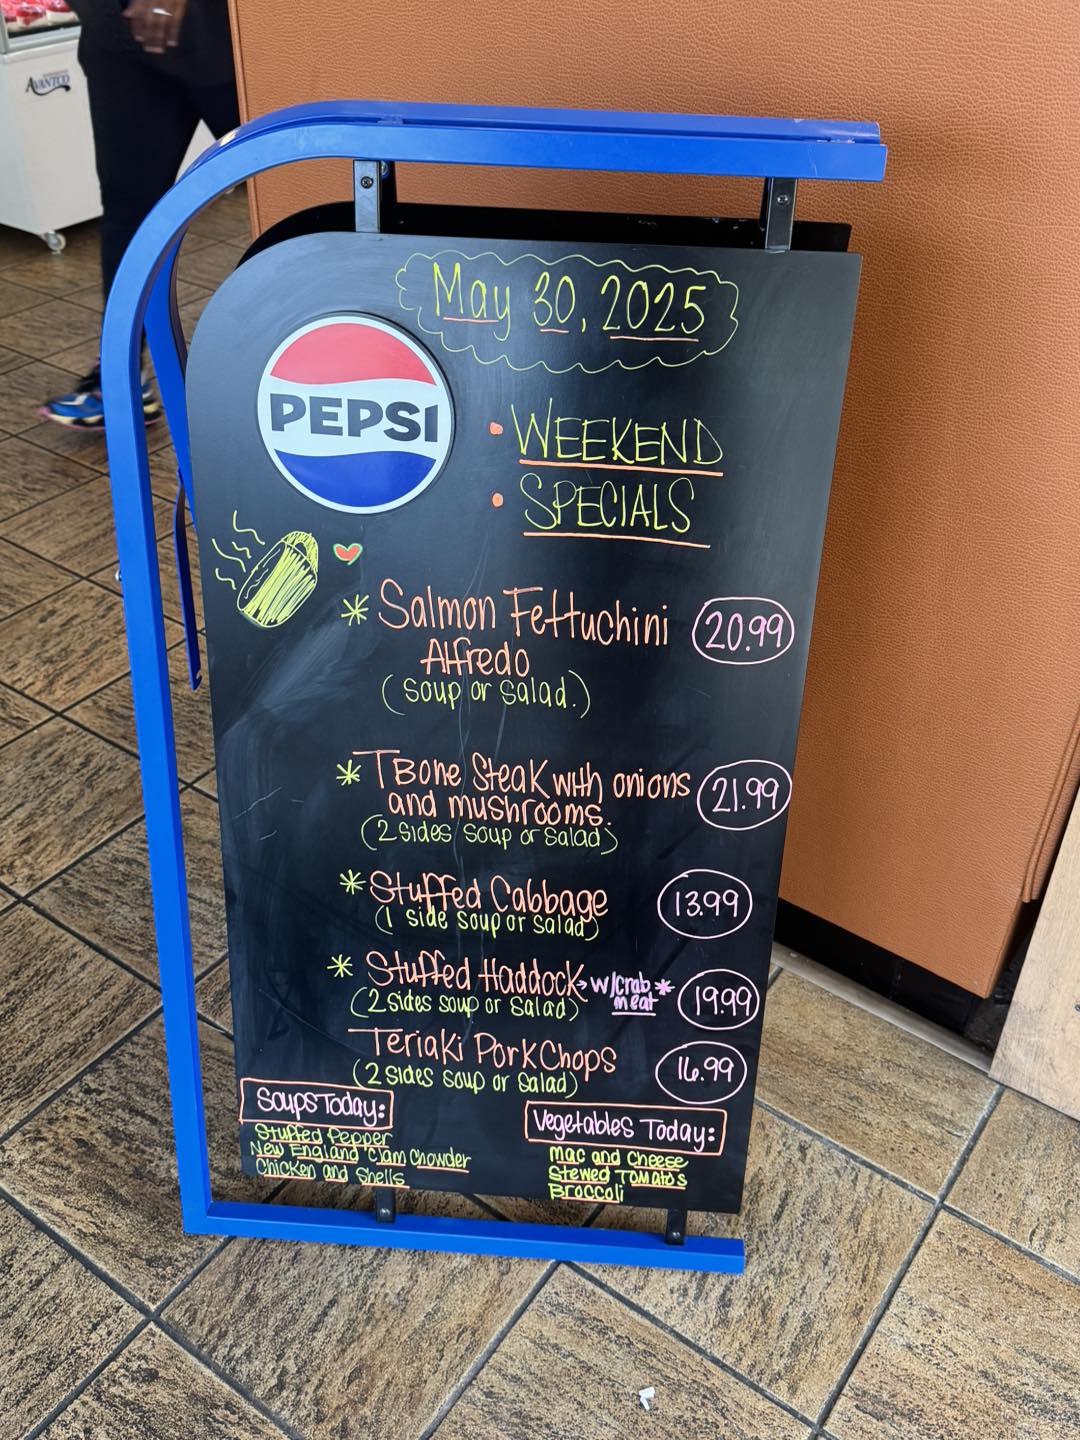 AVANTCO
May 30, 2025
PEPSI
• WEEKEND
• SPECIALS
* Salmon Fettuchini 20.99
Alfredo
(soup or salad.)
* TBone Steak with onions 21.99
and mushrooms.
(2 sides soup or salad)
* Stuffed Cabbage 13.99
(1 side soup or salad)
* Stuffed Haddock → w/crab * 19.99
meat
(2 sides soup or salad)
Teriaki Pork Chops 16.99
(2 sides soup or salad)
Soups Today:
Stuffed Pepper
New England Clam Chowder
Chicken and Shells
Vegetables Today:
Mac and Cheese
Stewed Tomatos
Broccoli